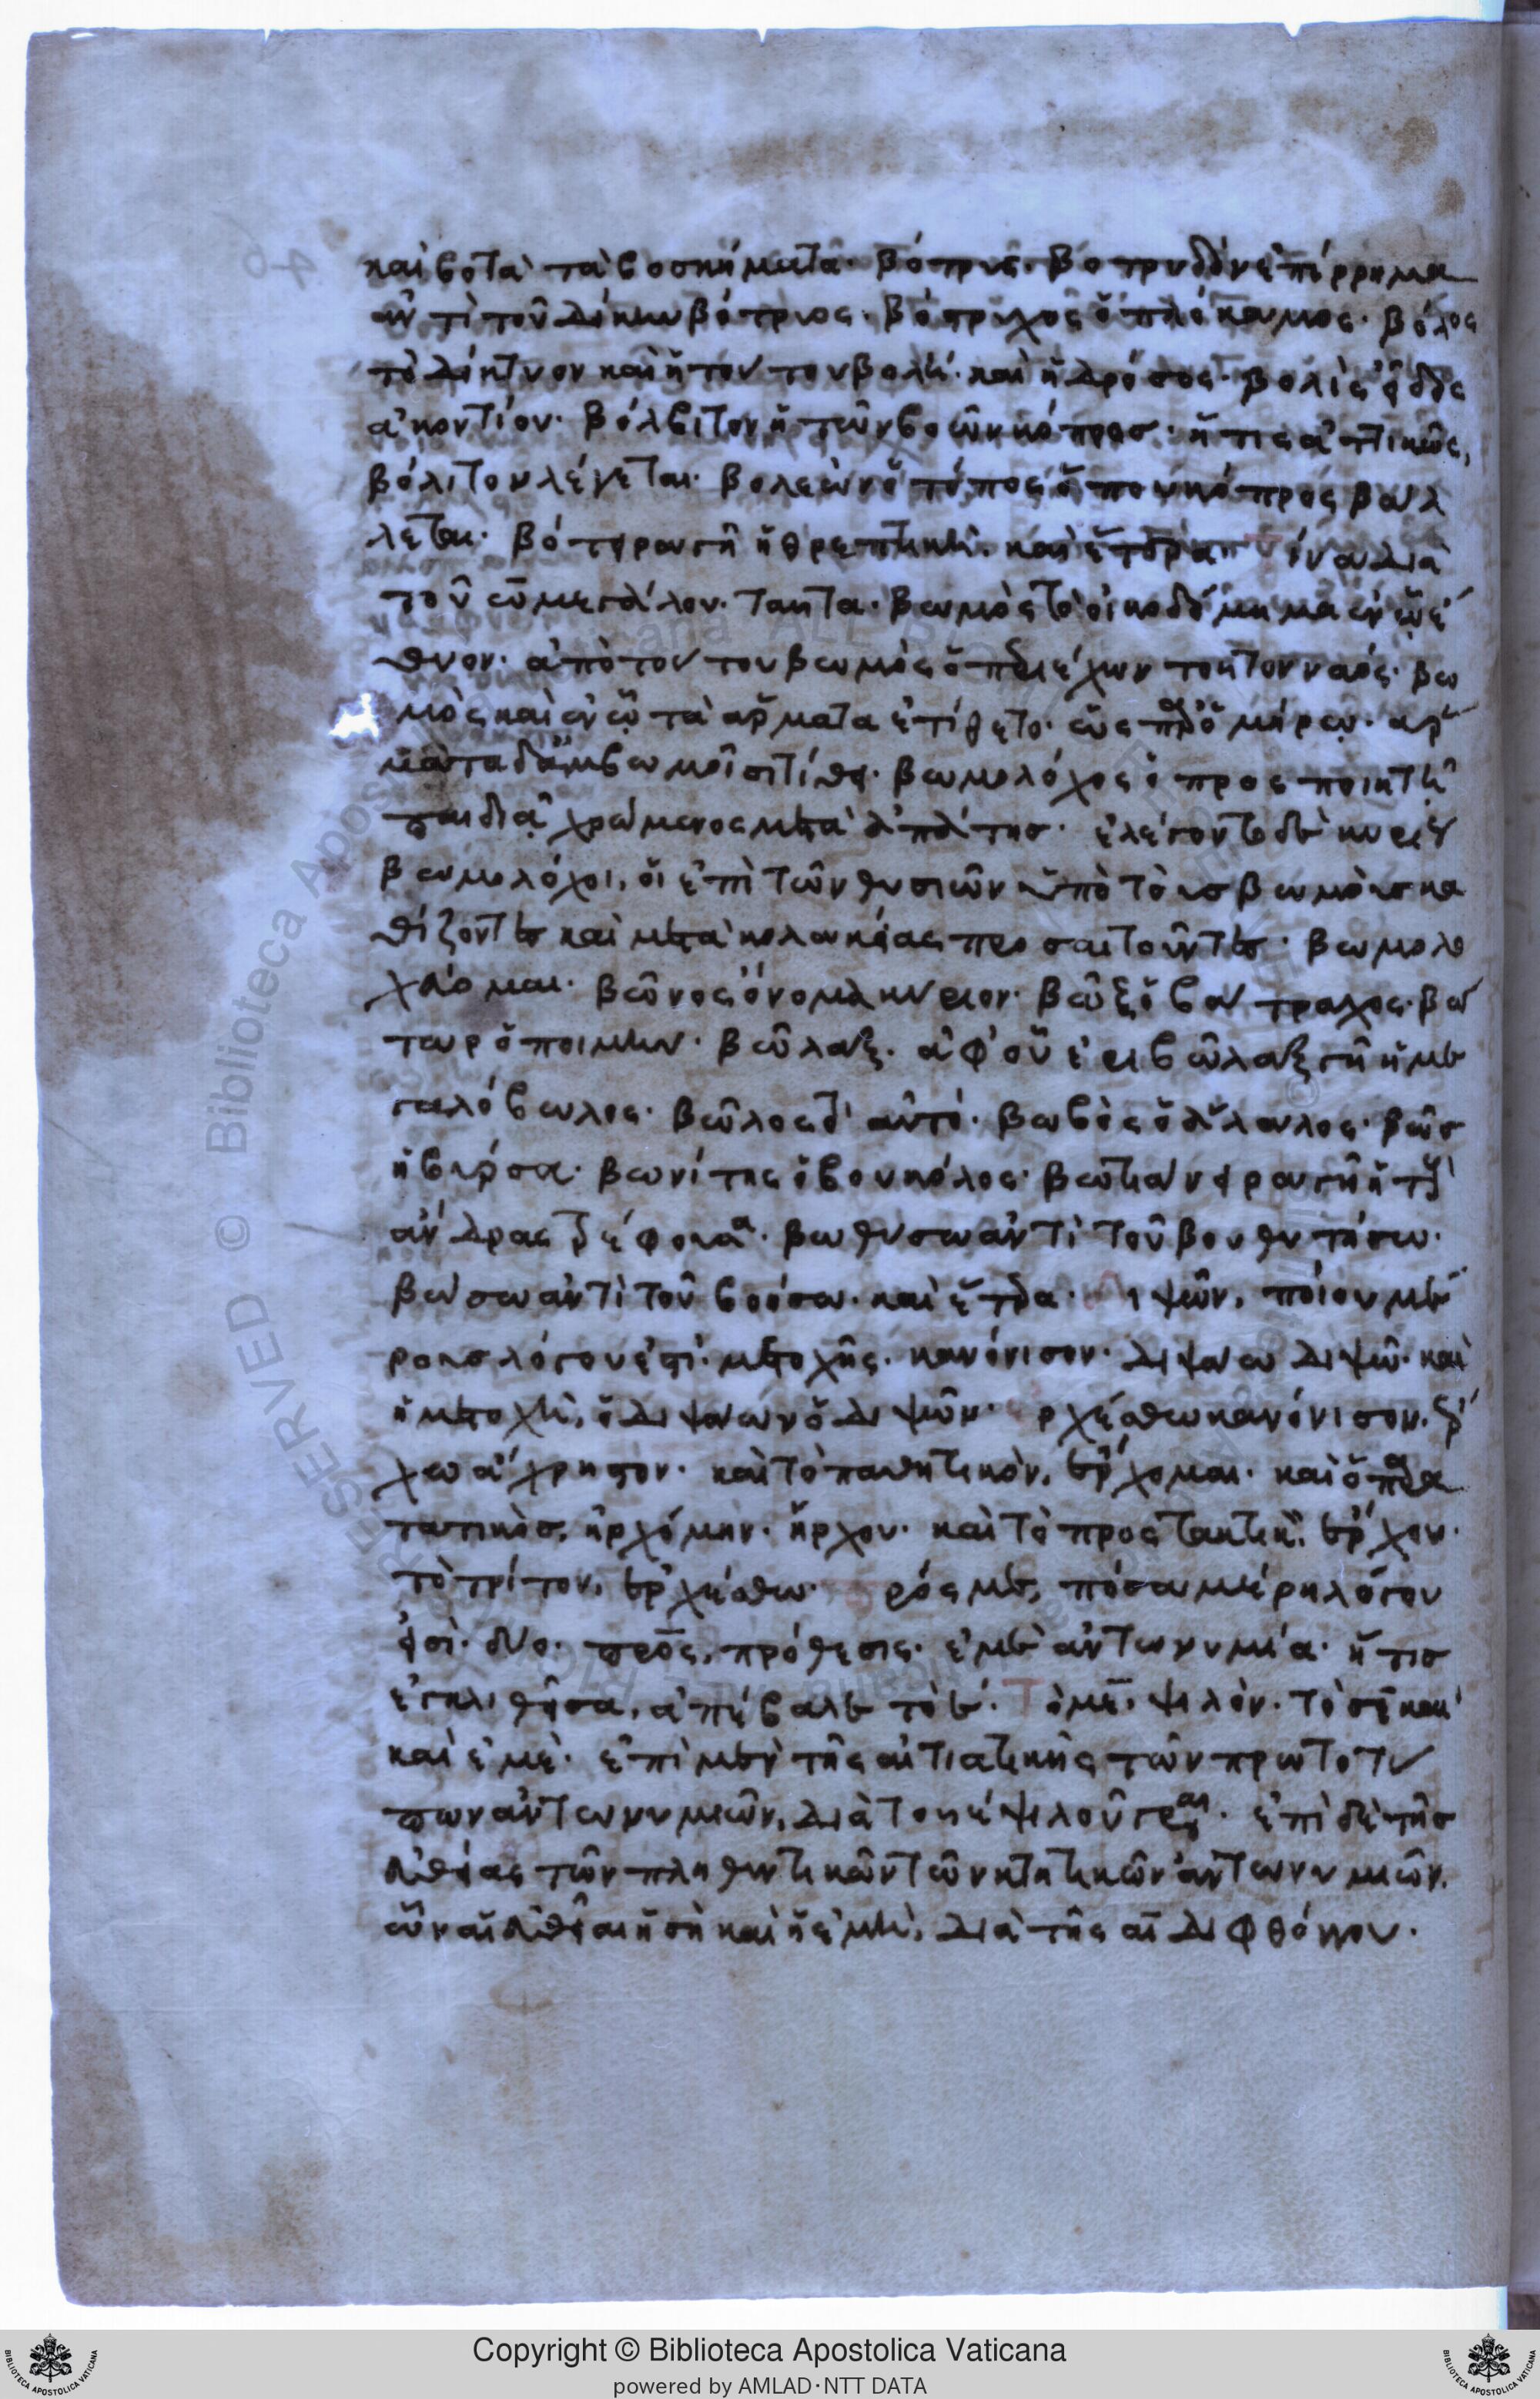 καὶ βοτὰ τὰ βοσκήματα· βότρυς· βοτρυδὸν ἐπίρρημα
ἀντὶ τοῦ δίκην βότρυος· βόστρυχος ὁ πλόκαμος· βόλος
τὸ δίκτυον καὶ ἡ τούτου βολή· καὶ ἡ δρόσος· βολὶς εἶδος
ἀκοντίου· βόλβιτον ἡ τῶν βοῶν κόπρος· ἥτις ἀττικῶς,
βόλιτον λέγεται· βολεὼν ὁ τόπος ὅπου κόπρος βάλ
λεται· βότειρα γῆ ἡ θρεπτική· καὶ ἕτερα ἵνα διὰ
τοῦ ω μεγάλου· ταῦτα· βωμὸς τὸ οἰκοδόμημα ἐν ᾧ ἔ
θυον· ἀπὸ τούτου βωμὸς ὁ περιέχων τοῦτον ναός· βω
μὸς καὶ ἐν ᾧ τὰ ἅρματα ἐτίθετο· ὡς παρ' ὁμήρῳ· ἅρ
ματα δ' ἂμ βωμοῖσι τίθει· βωμολόχος ὁ προσποιητῇ
παιδιᾷ χρώμενος μετὰ ἀπάτης· ἐλέγοντο δὲ κυρίως
βωμολόχοι, οἱ ἐπὶ τῶν θυσιῶν ὑπὸ τοῖς βωμοῖς κα
θίζοντες καὶ μετὰ κολακείας προσαιτοῦντες· βωμολο
χεύομαι· βῶνος ὄνομα κύριον· βῶξ ὁ βάτραχος· βώ
τωρ ὁ ποιμήν· βῶλαξ· ἀφ' οὗ ἐριβῶλαξ γῆ ἡ με
γαλόβωλος· βῶλος τ' αὐτό· βωβὸς ὁ ἄλαλος· βῶς
ἡ βύρσα· βωνίτης ὁ βουκόλος· βωτιάνειρα γῆ ἡ τοὺς
ἄνδρας τρέφουσα· βωθύσω ἀντὶ τοῦ βουθυτήσω·
βώσω ἀντὶ τοῦ βοήσω· καὶ ἕτερα· ιψῶν, ποίου μέ
ρους λόγου ἐστί· μετοχῆς· κανόνισον· διψάω διψῶ· καὶ
ἡ μετοχὴ, ὁ διψάων ὁ διψῶν· ρχέσθω κανόνισον, ἔρ
χω ἄχρηστον· καὶ τὸ παθητικὸν, ἔρχομαι· καὶ ὁ παρα
τατικὸς, ἠρχόμην· ἤρχου· καὶ τὸ προστακτικὸν, ἔρχου·
τὸ τρίτον, ἐρχέσθω· ρός με, πόσα μέρη λόγου
εἰσί· δύο· πρὸς, πρόθεσις· ἐμὲ ἀντωνυμία· ἥτις
ἐγκλιθεῖσα, ἀπέβαλε τὸ ε· Τὸ με ψιλόν· τὸ σὲ καὶ
καὶ ἐμὲ· ἐπὶ μὲν τῆς αἰτιατικῆς τῶν πρωτοτύ
πων ἀντωνυμιῶν, διὰ τοῦ ε ψιλοῦ γράφεται· ἐπὶ δὲ τῆς
εὐθείας τῶν πληθυντικῶν τῶν κτητικῶν ἀντωνυμιῶν,
ὧν αἱ εὐθεῖαι ἡ σὴ καὶ ἡ ἐμὴ, διὰ τῆς αι διφθόγγου·
Copyright © Biblioteca Apostolica Vaticana
powered by AMLAD·NTT DATA